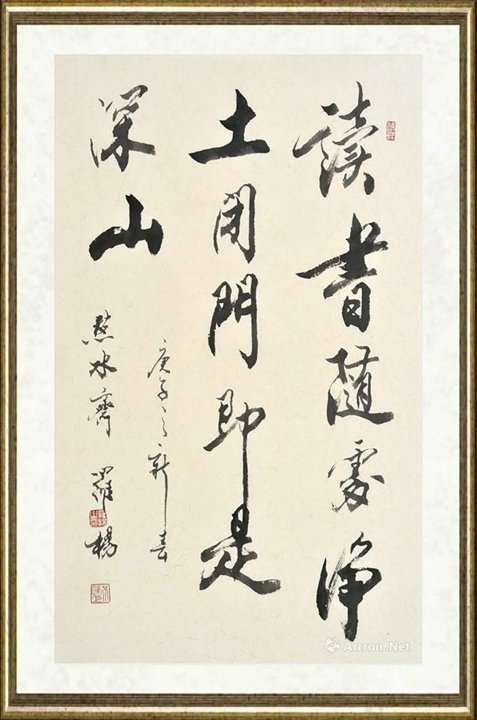 讀書隨處淨
土閉門即是
深山
庚子之新春
水齋 羅楊
Artron.Net